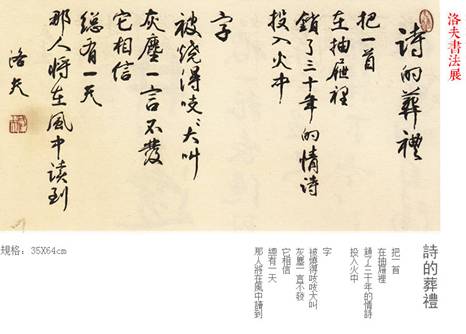 洛夫書法展
詩的葬禮
把一首
在抽屜裡
鎖了三十年的情詩
投入火中
字
被燒得吱〻大叫
灰塵一言不發
它相信
總有一天
那人將在風中讀到
洛夫
詩的葬禮
把一首
在抽屜裡
鎖了三十年的情詩
投入火中
字
被燒得吱吱大叫
灰塵一言不發
它相信
總有一天
那人將在風中讀到
規格：35X64cm